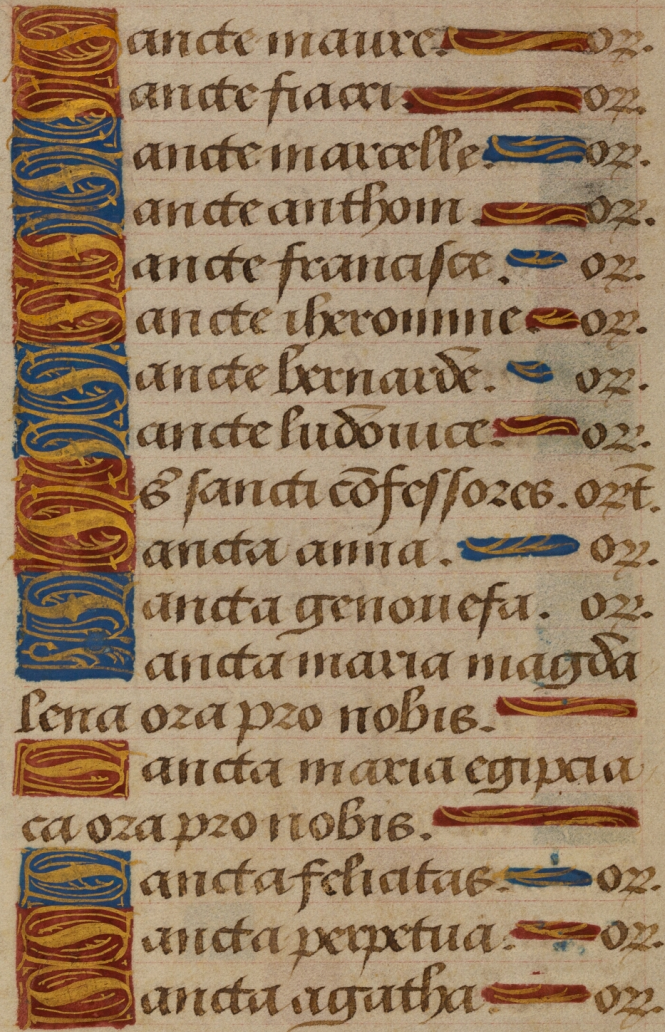 Sancte maure. or.
Sancte fiacri. or.
Sancte marcelle. or.
Sancte anthoni. or.
Sancte francisce. or.
Sancte iheronime. or.
Sancte bernarde. or.
Sancte ludovice. or.
Oẽs sancti cõfessores. ort̃.
Sancta anna. or.
Sancta genouefa. or.
Sancta maria magda
lena ora pro nobis.
Sancta maria egipcia
ca ora pro nobis.
Sancta felicitas. or.
Sancta perpetua. or.
Sancta agatha. or.